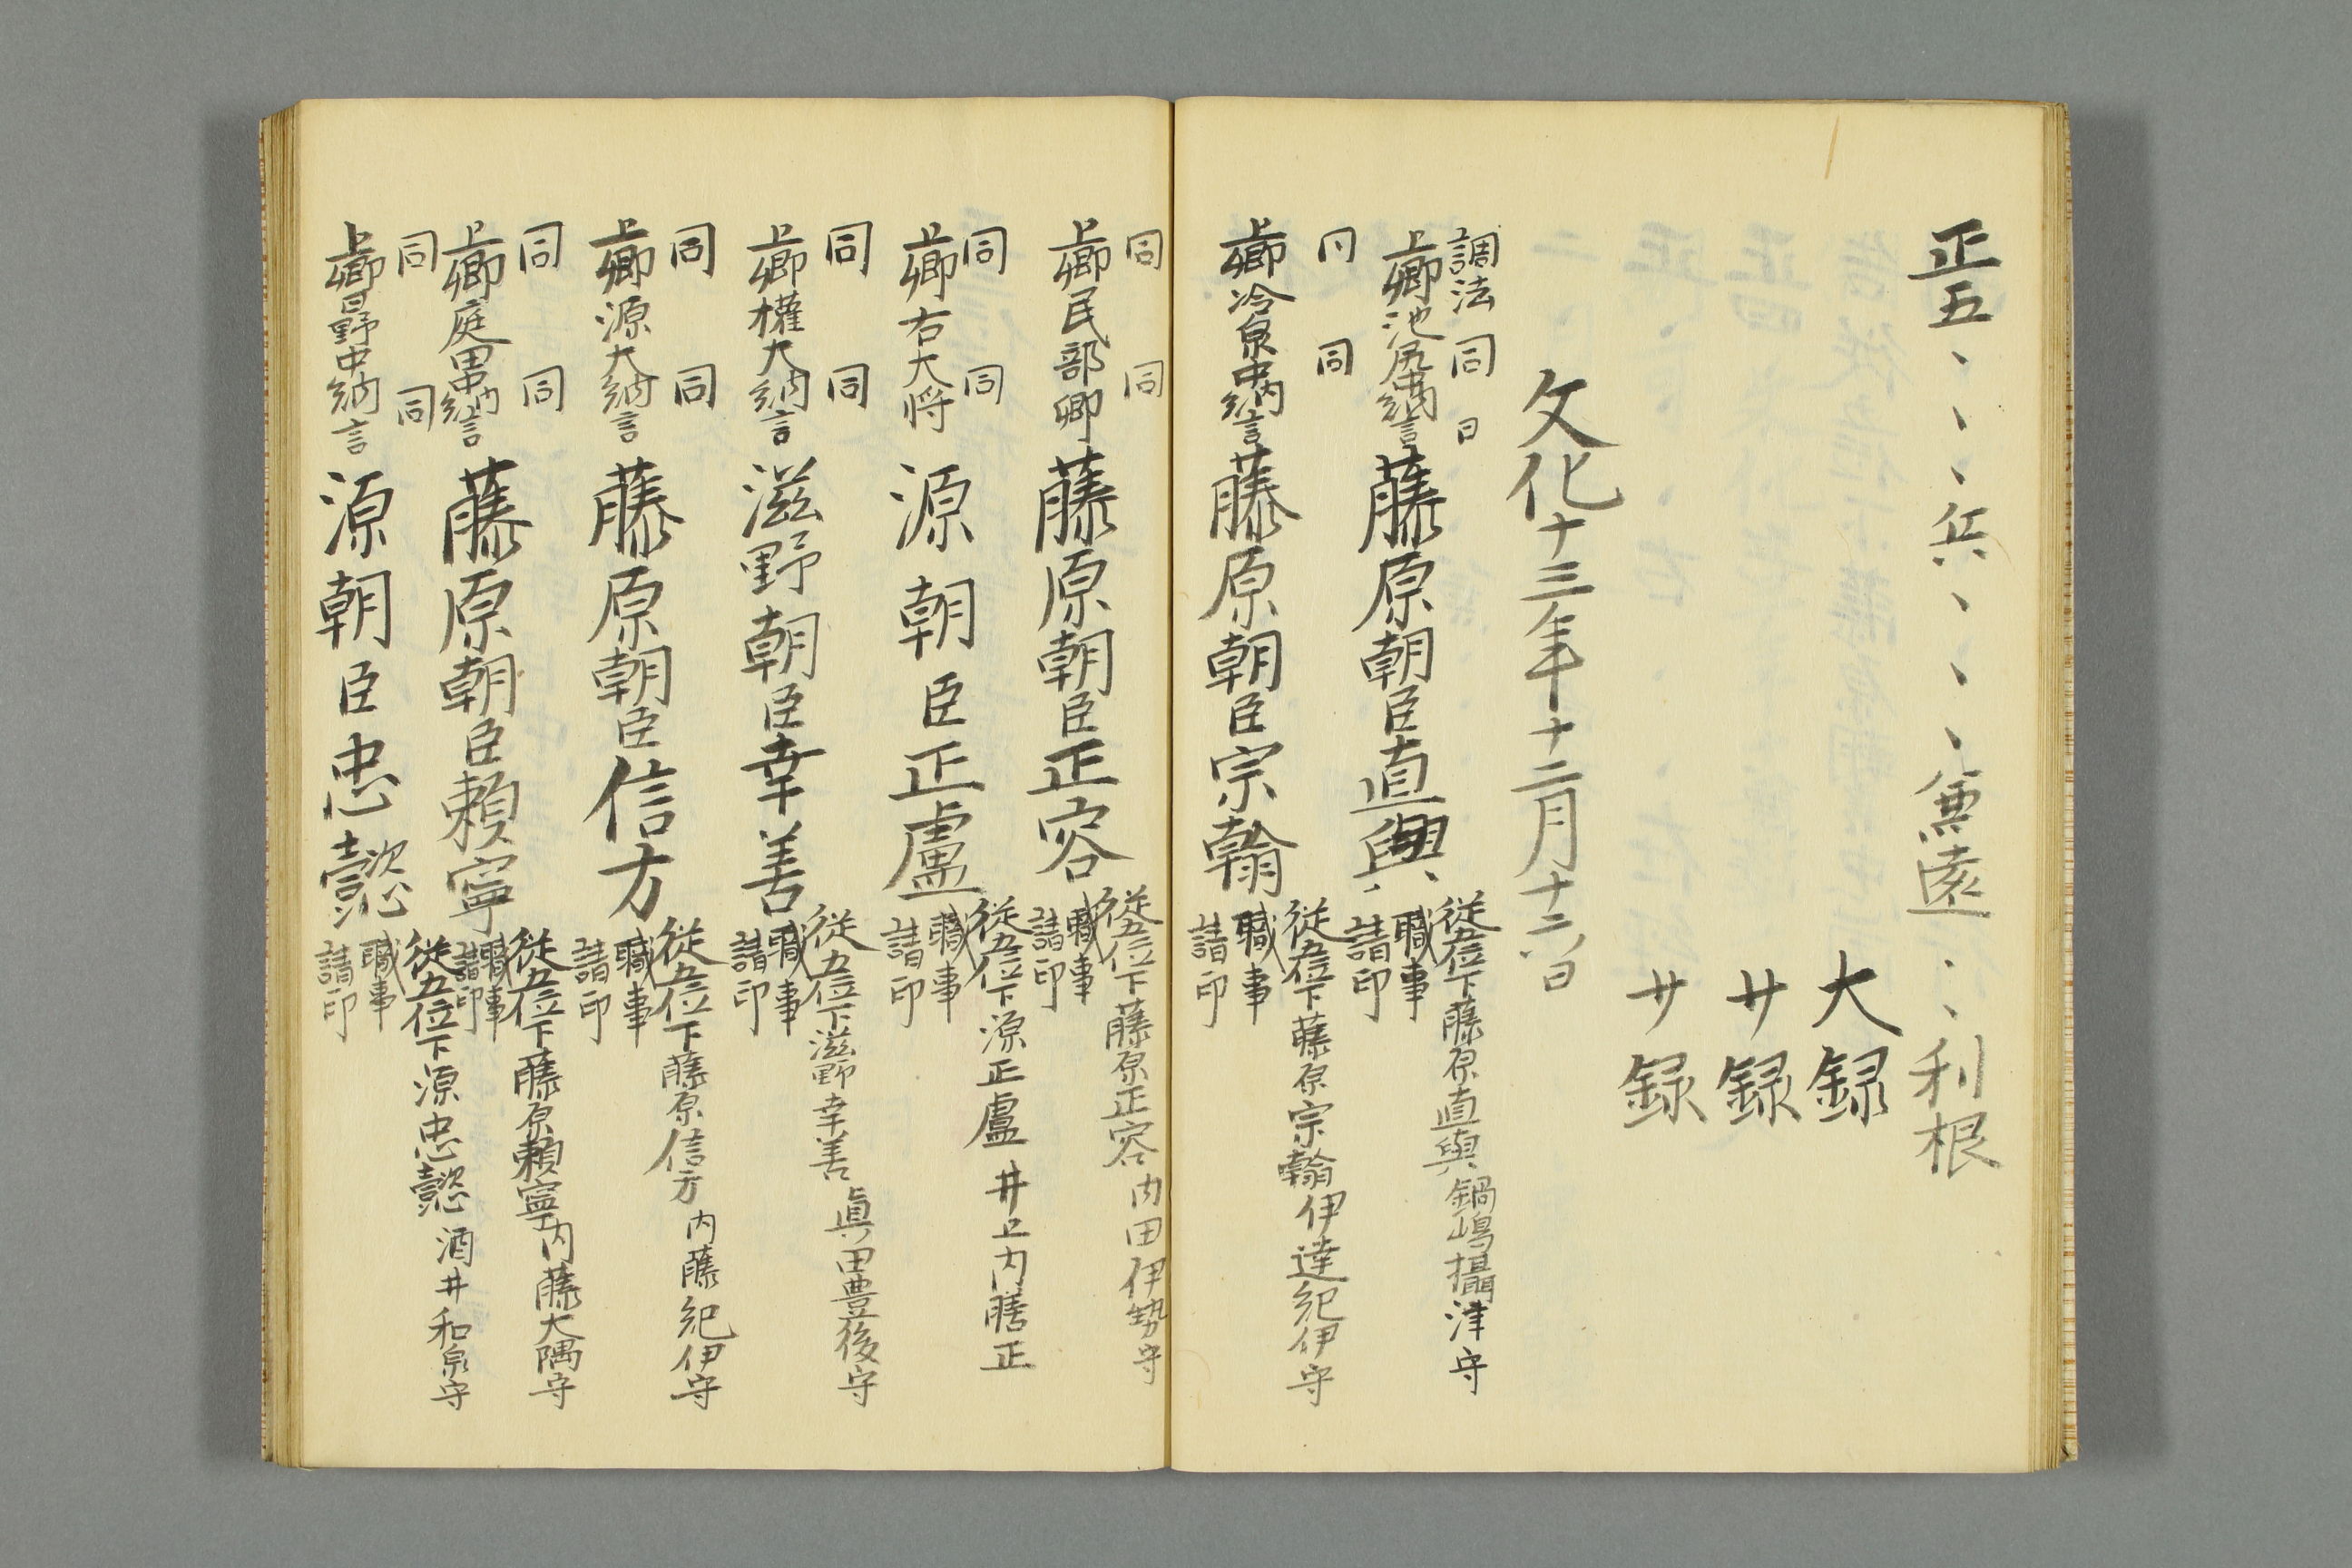 正五、、、兵、、、無遠、、利根
大録
廿録
廿録
文化十三年十二月十六日
調法 同 日
上卿池尻中納言 藤原朝臣直與
従五位下藤原直與 鍋嶋攝津守
職事
請印
同 同
上卿冷泉中納言 藤原朝臣宗翰
従五位下藤原宗翰 伊達紀伊守
職事
請印
同 同
上卿民部卿 藤原朝臣正容
従五位下藤原正容 内田伊勢守
職事
請印
同 同
上卿右大将 源朝臣正盧
従五位下源正盧 井上内膳正
職事
請印
同 同
上卿權大納言 滋野朝臣幸善
従五位下滋野幸善 眞田豊後守
職事
請印
同 同
上卿源大納言 藤原朝臣信方
従五位下藤原信方 内藤紀伊守
職事
請印
同 同
上卿庭田中納言 藤原朝臣頼寧
従五位下藤原頼寧 内藤大隅守
職事
請印
同 同
上卿日野中納言 源朝臣忠懿
従五位下源忠懿 酒井和泉守
職事
請印